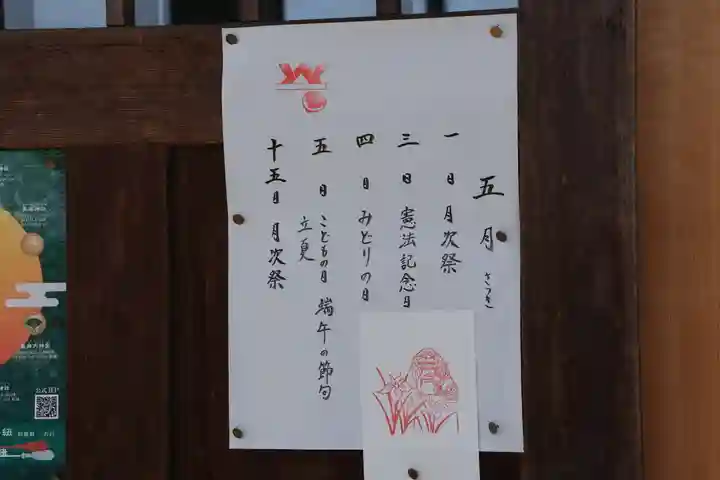 五月 さつき
一日 月次祭
三日 憲法記念日
四日 みどりの日
五日 こどもの日 端午の節句
立夏
十五日 月次祭
公式HP